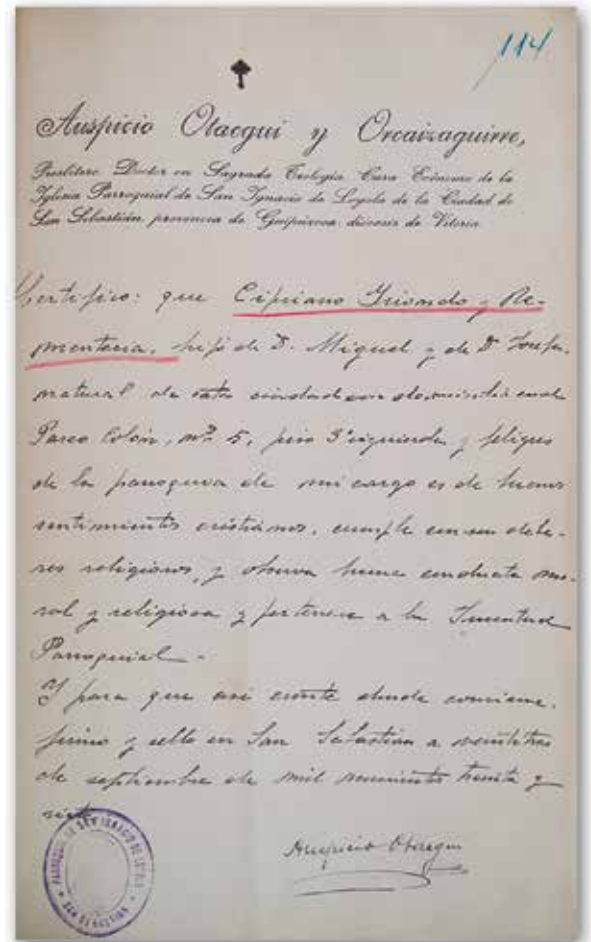 114
Auspicio Otaegui y Orcaizaguirre,
Presbítero Doctor en Sagrada Teología Cura Ecónomo de la
Iglesia Parroquial de San Ignacio de Loyola de la Ciudad de
San Sebastián, provincia de Guipúzcoa, diócesis de Vitoria
Certifico: que Cipriano Iriondo y Re-
mentería, hijo de D. Miguel y de Dª Josefa,
natural de esta ciudad con domicilio en el
Paseo Colón, nº 5, piso 3º izquierda y feligres
de la parroquia de mi cargo es de buenos
sentimientos cristianos, cumple con sus debe-
res religiosos, y observa buena conducta mo-
ral y religiosa y pertenece a la Juventud
Parroquial.-
Y para que así conste donde conviene,
firmo y sello en San Sebastián a veintitres
de septiembre de mil novecientos treinta y
siete
Auspicio Otaegui
PARROQUIA DE SAN IGNACIO DE LOYOLA
SAN SEBASTIAN